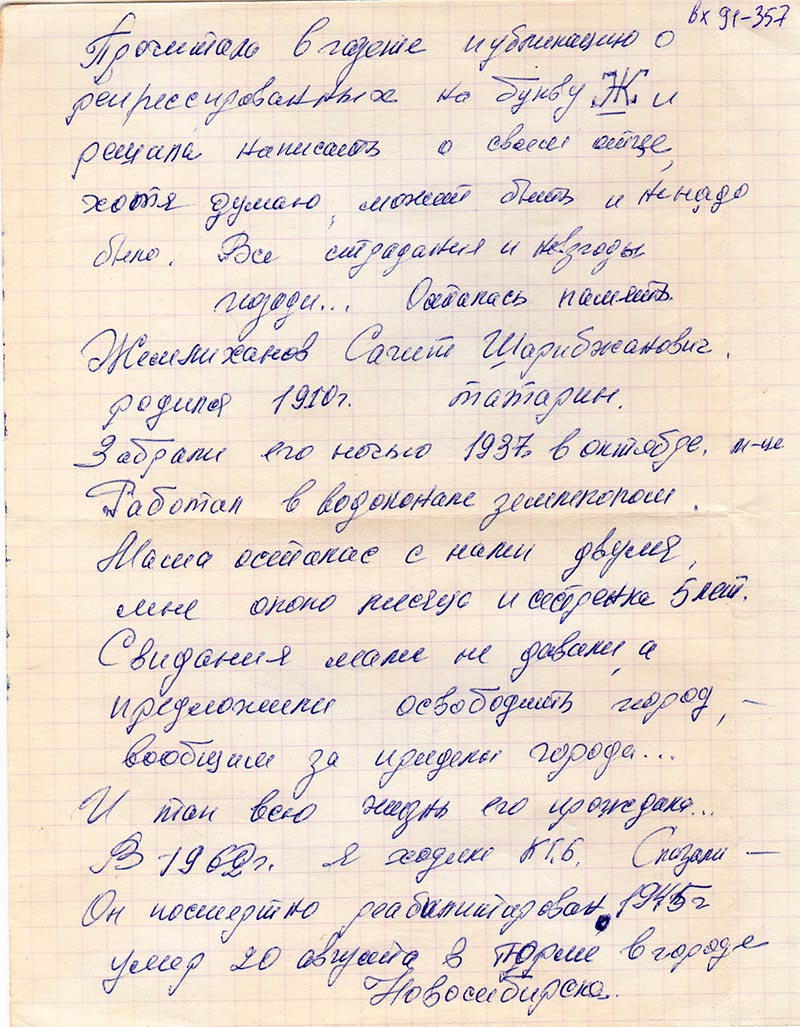 вх 91-357
Прочитала в газете публикацию о
репрессированных на букву "Ж" и
решала написать о своем отце,
хотя думаю, может быть и не надо
было. Все страдания и невзгоды
позади... Осталась память.
Жемлиханов Сагит Шарибжанович.
родился 1910г. татарин.
Забрали его ночью 1937г в октябре. м-це
Работал в водоканале землекопом.
Мама осталас с нами двумя,
мне около месяца и сестренка 5 лет.
Свидания маме не давали, а
предложили освободить город, —
вообщем за приделы города...
И так всю жизнь его прождала...
В 1962г. я ходила КГБ. Сказали —
Он посмертно реабилитирован, 1945г
умер 20 августа в тюрме в городе
Новосибирска.